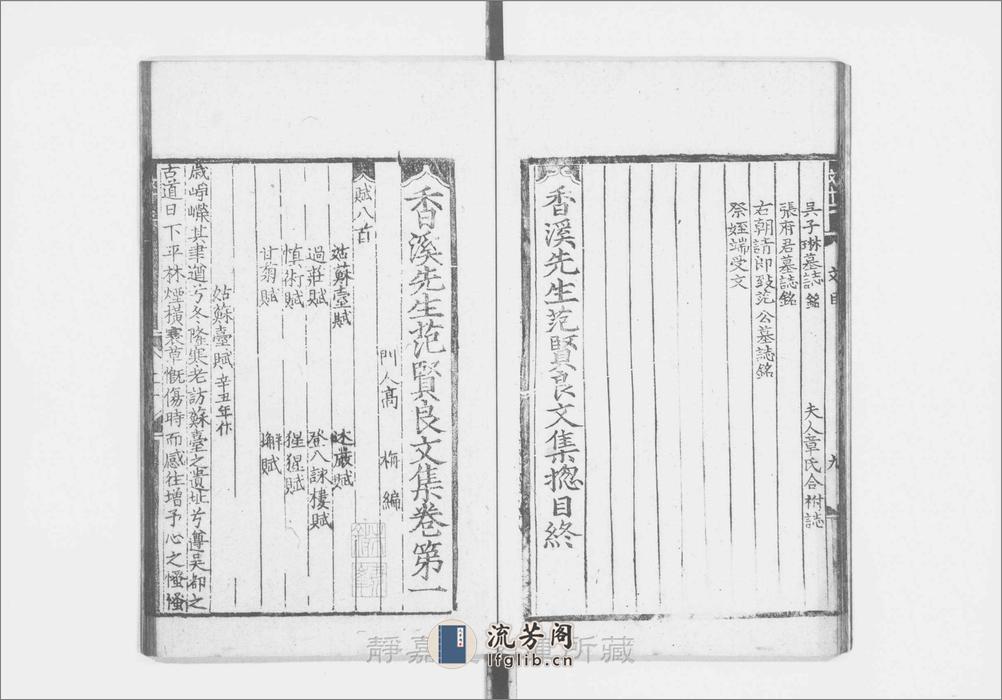 吳子琳墓誌銘　夫人章氏合祔誌
張府君墓誌銘
右朝請郎致范公墓誌銘
祭姪端受文
香溪先生范賢良文集揔目終
文目
九
香溪先生范賢良文集卷第一
門人高　梅　編
賦八首
姑蘇臺賦　述嚴賦
過莊賦　登八詠樓賦
慎術賦　猩猩賦
甘菊賦　蠏賦
姑蘇臺賦辛丑年作
歲崢嶸其聿遒兮冬隆寒老訪蘇臺之遺址兮遵吳都之
古道日下平林煙橫衰草慨傷時而感往增予心之慅慅
靜嘉 所藏
流芳阁
lfglib.cn